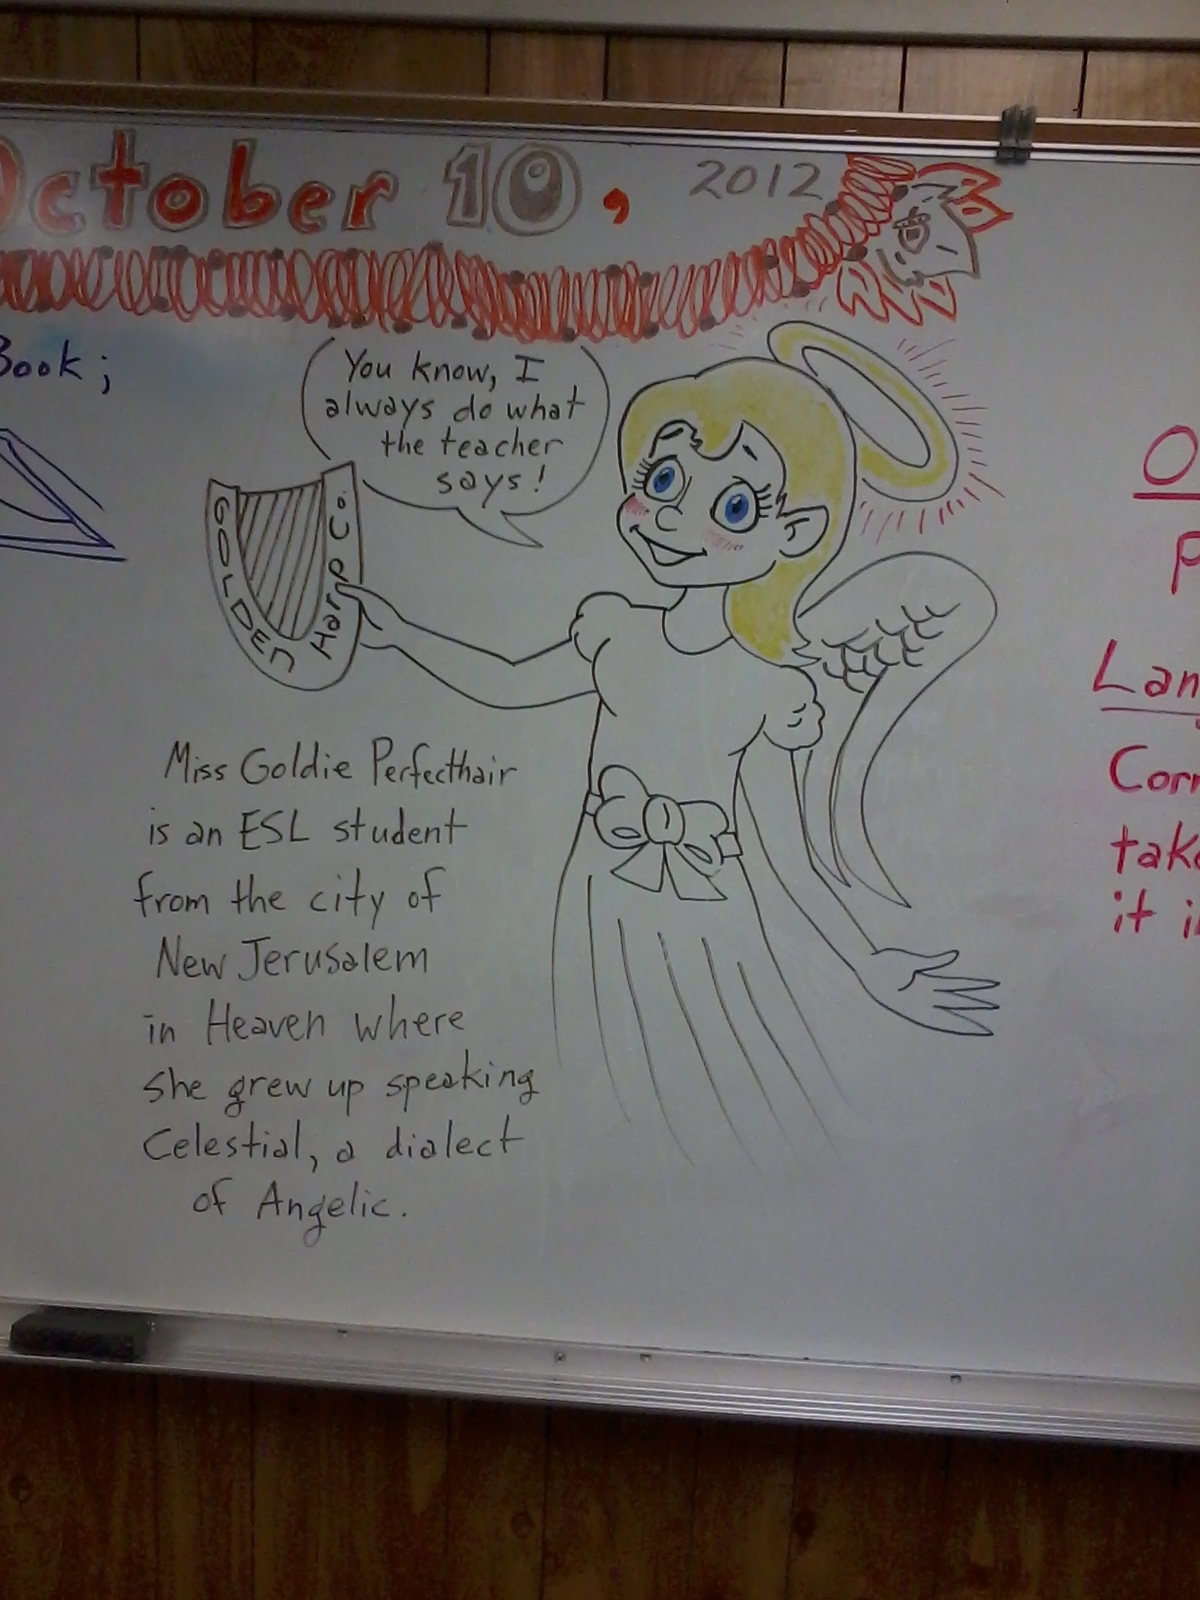 October 10, 2012
Book;
You know, I
always do what
the teacher
says!
GOLDEN Harp Co.
Miss Goldie Perfecthair
is an ESL student
from the city of
New Jerusalem
in Heaven where
she grew up speaking
Celestial, a dialect
of Angelic.
O
P
Lan
Corr
take
it i